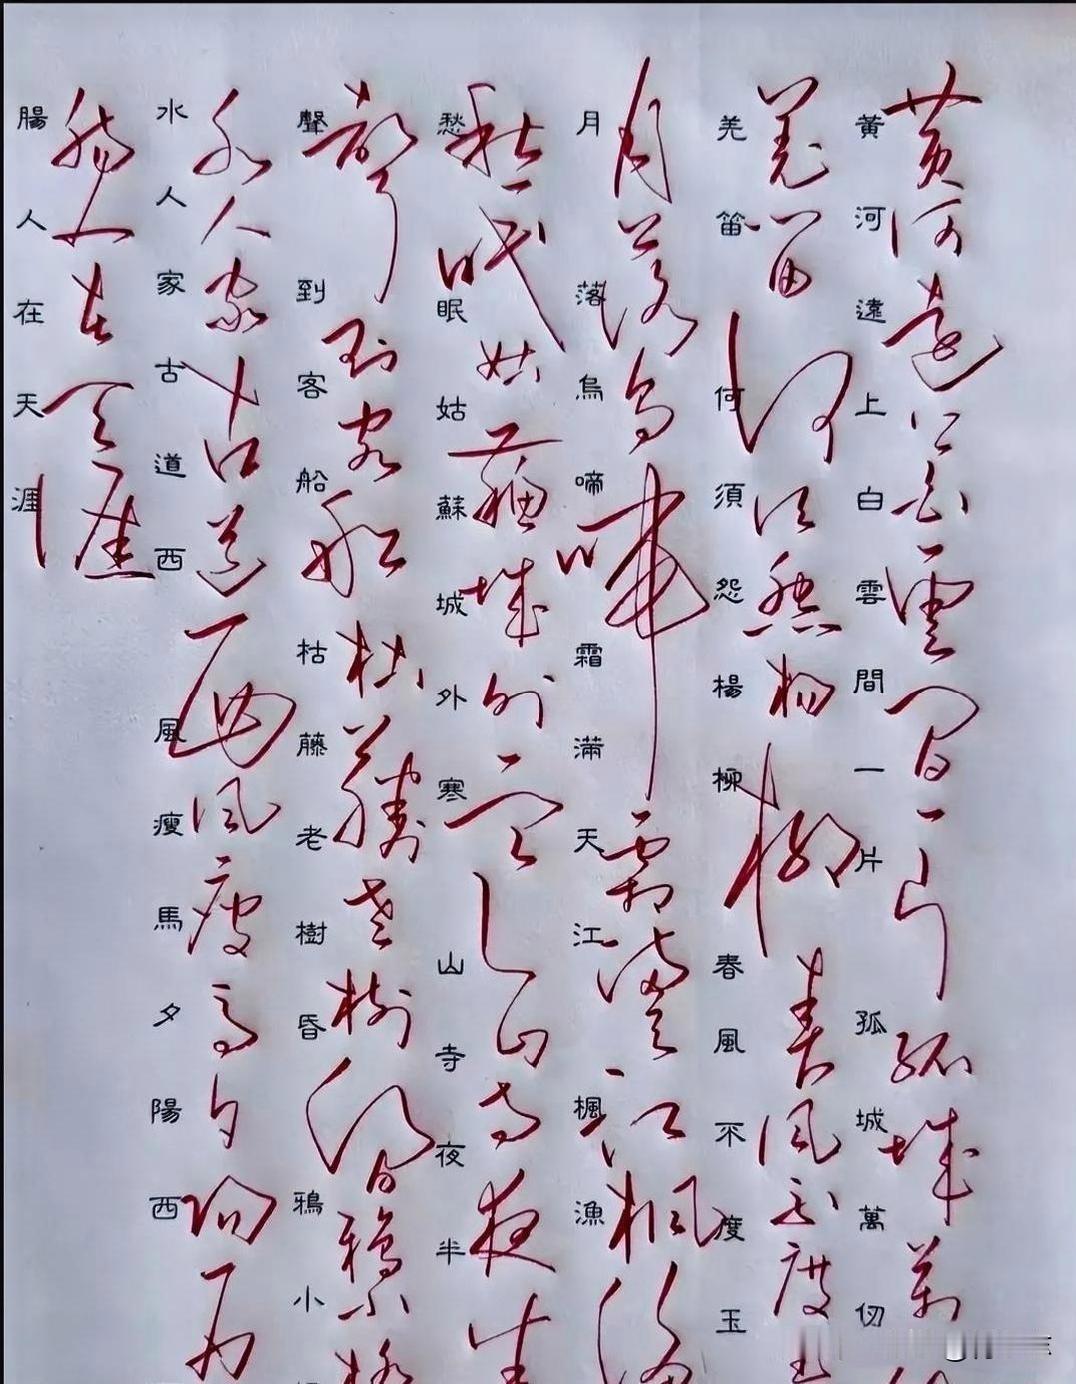 黃河遠上白雲間一片孤城萬
黃河遠上白雲間一片孤城萬仞
羌笛何須怨楊柳春風不度玉
羌笛何須怨楊柳春風不度玉
月落烏啼霜滿天江楓漁
月落烏啼霜滿天江楓漁
愁眠姑蘇城外寒山寺夜半
愁眠姑蘇城外寒山寺夜半
聲到客船枯藤老樹昏鴉小
聲到客船枯藤老樹昏鴉小
水人家古道西風瘦馬夕陽西
水人家古道西風瘦馬夕陽西
腸人在天涯
腸人在天涯